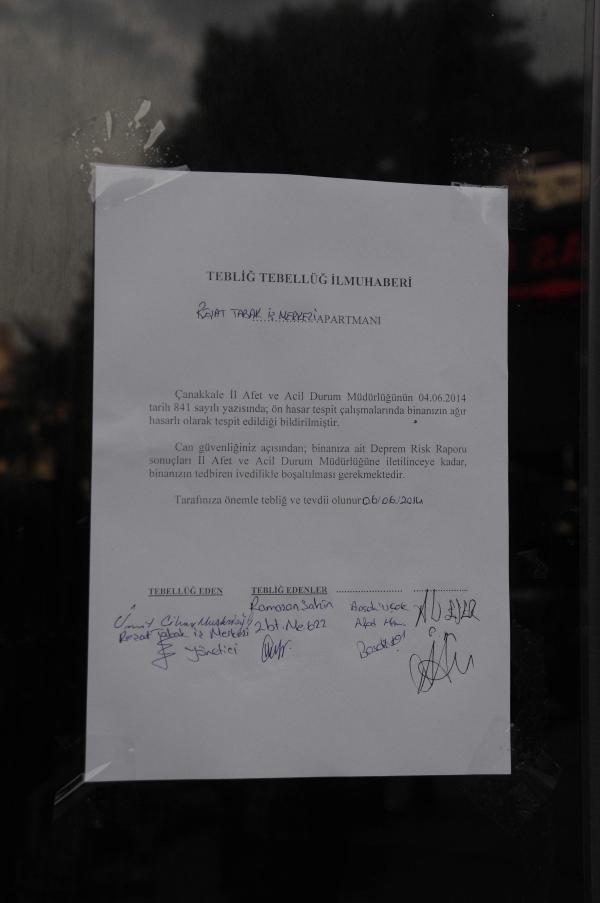 TEBLİĞ TEBELLÜĞ İLMUHABERİ
REŞAT TABAK İŞ MERKEZİ APARTMANI
Çanakkale İl Afet ve Acil Durum Müdürlüğünün 04.06.2014
tarih 841 sayılı yazısında; ön hasar tespit çalışmalarında binanızın ağır
hasarlı olarak tespit edildiği bildirilmiştir.
Can güvenliğiniz açısından; binanıza ait Deprem Risk Raporu
sonuçları İl Afet ve Acil Durum Müdürlüğüne iletilinceye kadar,
binanızın tedbiren ivedilikle boşaltılması gerekmektedir.
Tarafınıza önemle tebliğ ve tevdii olunur 06/06/2014
TEBELLÜĞ EDEN TEBLİĞ EDENLER
Ümit Cihan Ramazan Şahin
Reşat Tabak iş Merkezi
Yönetici